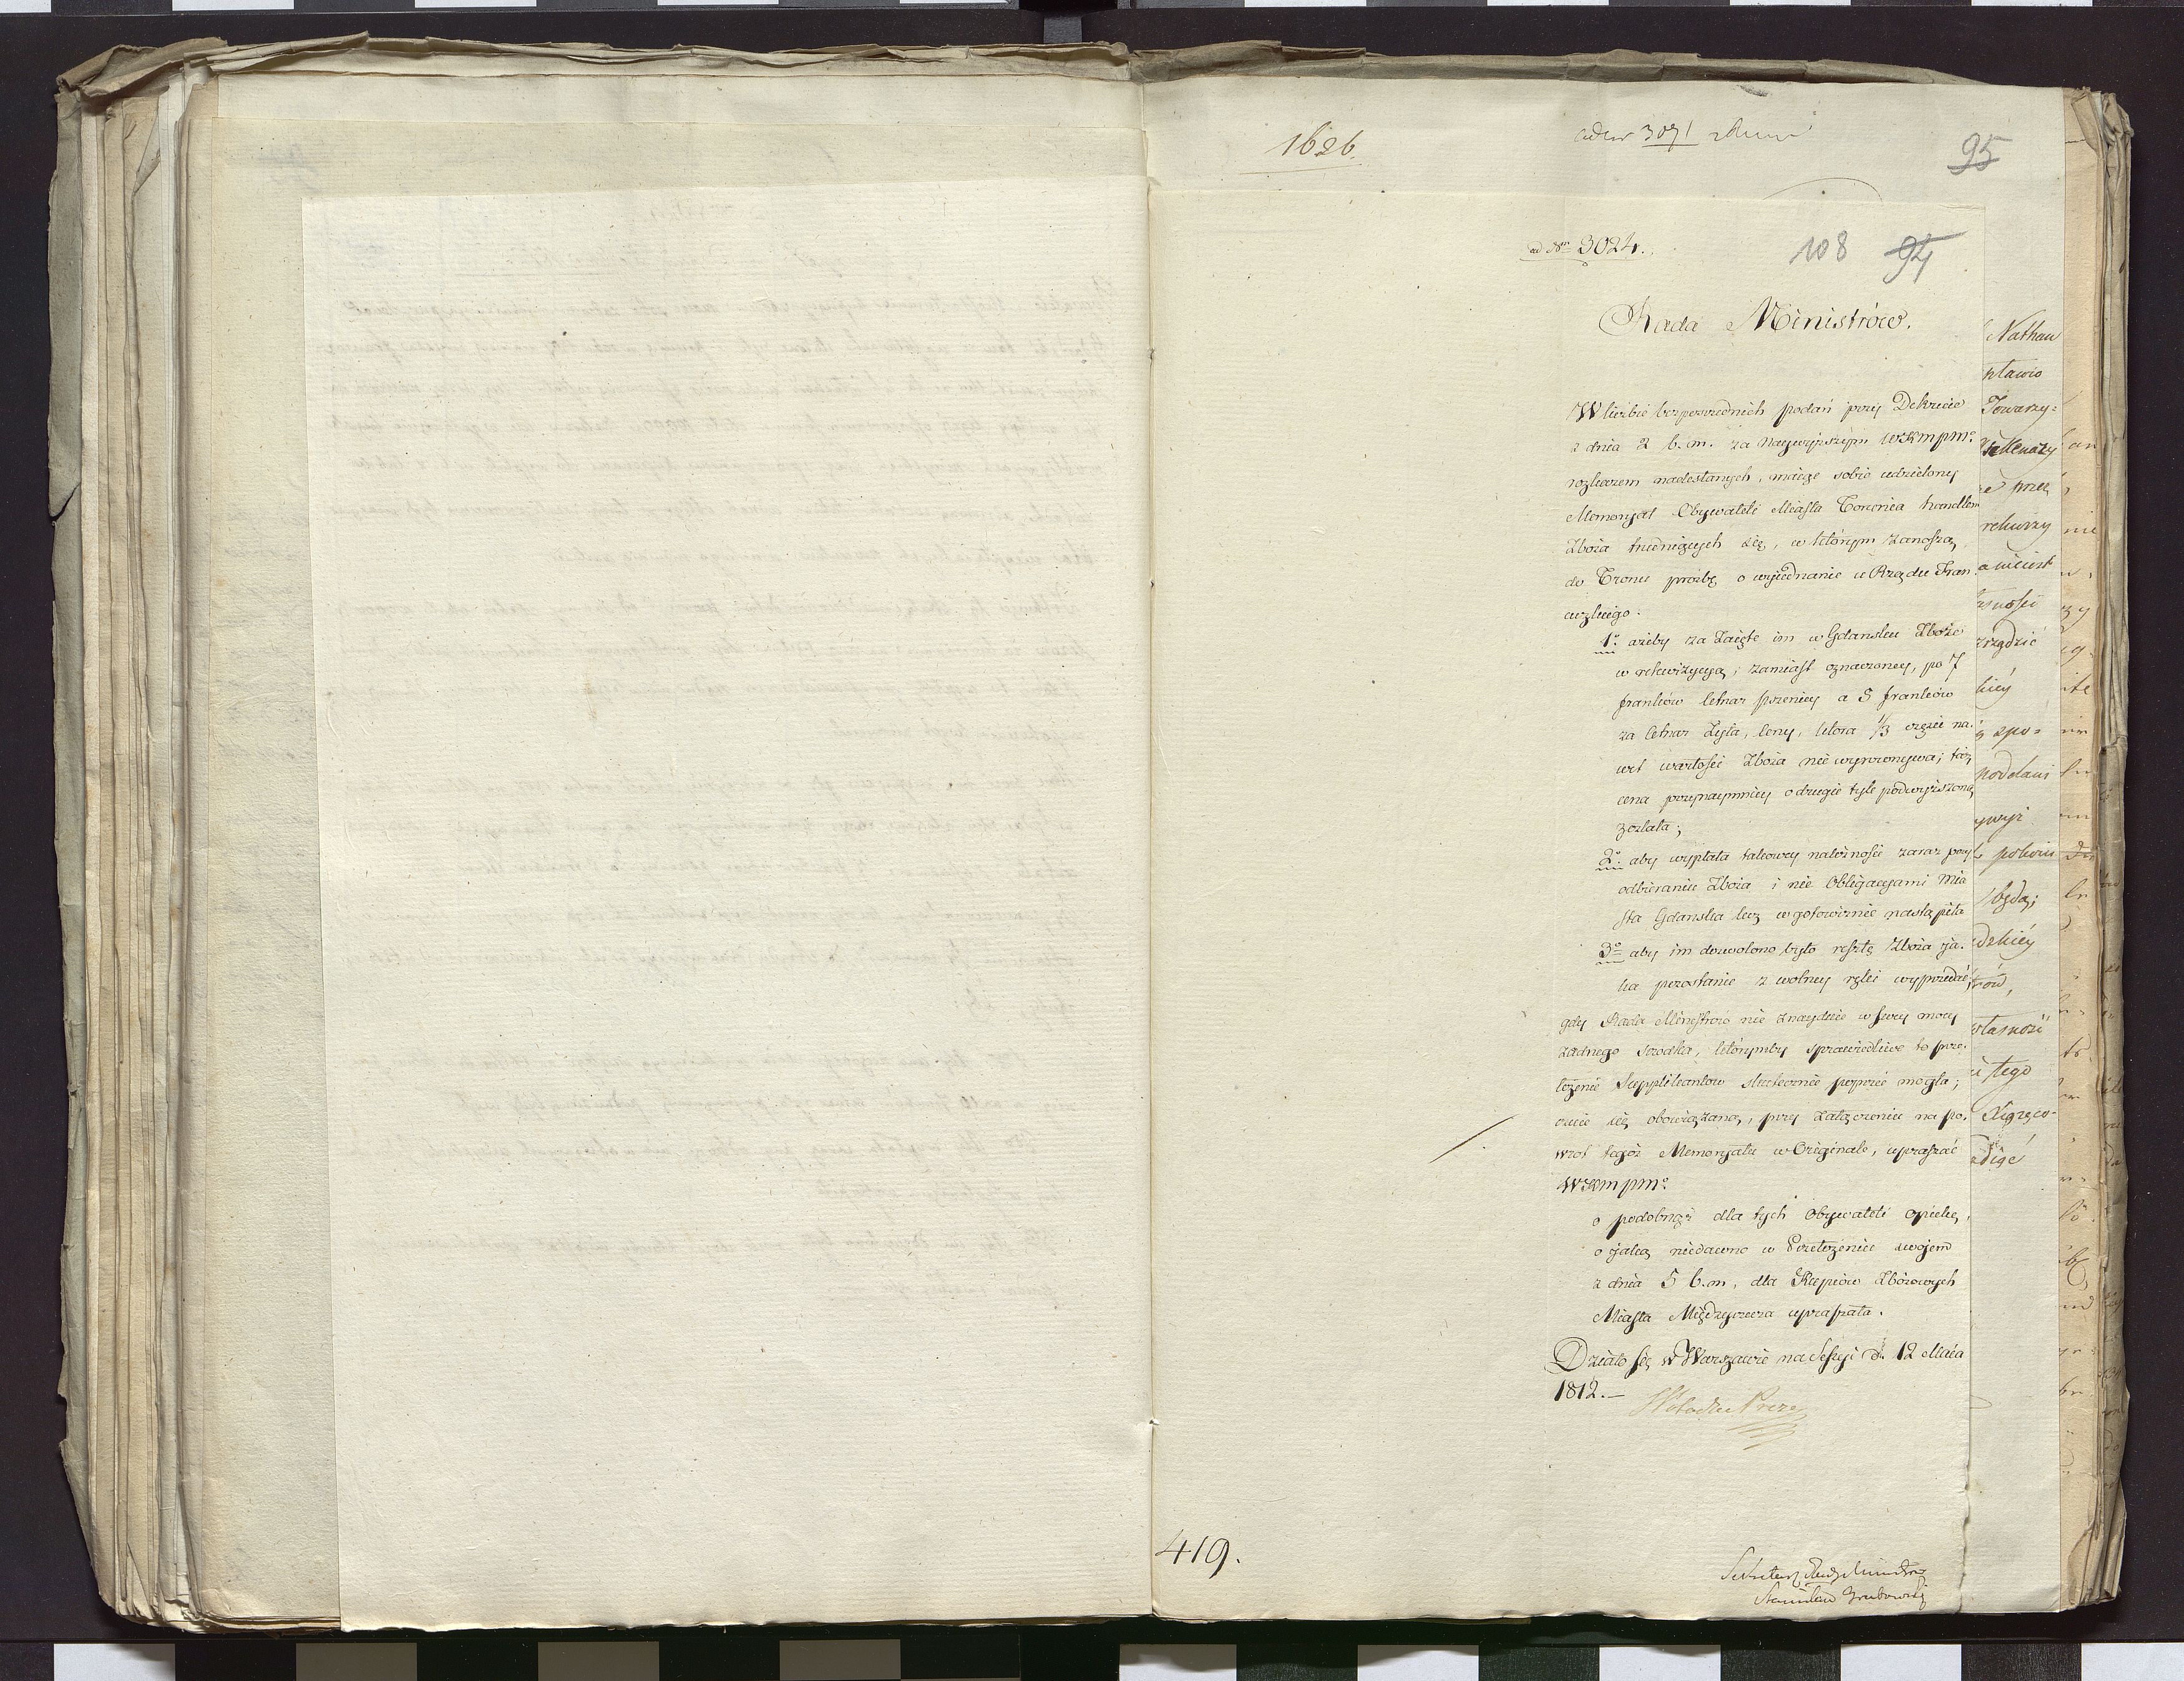 1626.
3091
95
ad Nrm 3024.
108 94
Rada Ministrów.
W liczbie bezpośrednich podań przy Dekrecie
z dnia 2 b. m. za Naywyższym WKMPM:
rozkazem nadesłanych, maiąc sobie udzielony
Memoryał Obywateli Miasta Torunia handlem
Zboża trudniących się, w którym zanoszą
do Tronu prożbę o wyiednanie u Rządu Fran-
cuzkiego.
1o. ażeby za Zaięte im w Gdansku Zboże
w rekwizycyą, zamiast oznaczoney, po 7
franków letnar pszenicy a 5 franków
za letnar Żyta, ceny, ktora 1/3 części na-
wet wartości Zboża nie wyrownywa; taż
cena przynaymniey o drugie tyle podwyższoną
została;
2o. aby wypłata takowey należności zaraz przy
odbieraniu Zboża i nie Obligacyami Mia
sta Gdanska lecz w gotowiznie nastąpiła
3o aby im dozwolono było resztę Zboża ja-
ka pozostanie z wolney ręki wyprzedać;
gdy Rada Ministrów nie znayduie w swey mocy
żadnego srodka, którymby sprawiedliwe to prze-
łożenie Supplikantow skutecznie poprzeć mogła;
czuie się obowiązaną, przy Załączeniu na po-
wrot tegoż Memoryału w Oryginale, upraszać
WKMPM:
o podobnąż dla tych Obywateli opiekę,
o jaką niedawno w Przełożeniu swojem
z dnia 5 b. m. dla Kupców Zbożowych
Miasta Międzyrzecza upraszała.
Działo się w Warszawie na Sessyi d. 12 Maia
1812.—
Prezes
419.
Sekretarz Rady Ministrów
Stanisław Grabowski
Nathan
Towarzy-
przez
rekwizy
kiey
spo-
poddani
będą;
tego